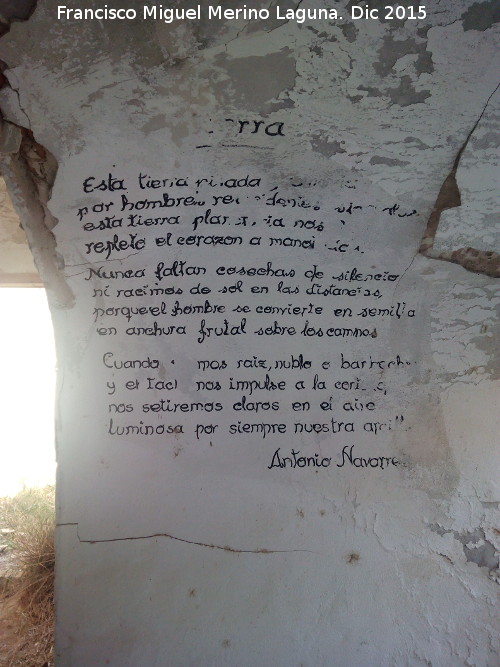 Francisco Miguel Merino Laguna. Dic 2015
rra
Esta tierra
por hombre
esta tierra
repleto el corazon a
Nunca faltan cosechas de silencio
ni racimos de sol en las distancias,
porque el hombre se convierte en semilla
en anchura frutal sobre los campos
Cuando mos raiz, nublo o
y el nos impulse a la
nos setiremos claros en el aire
luminosa por siempre nuestra
Antonio Navarre